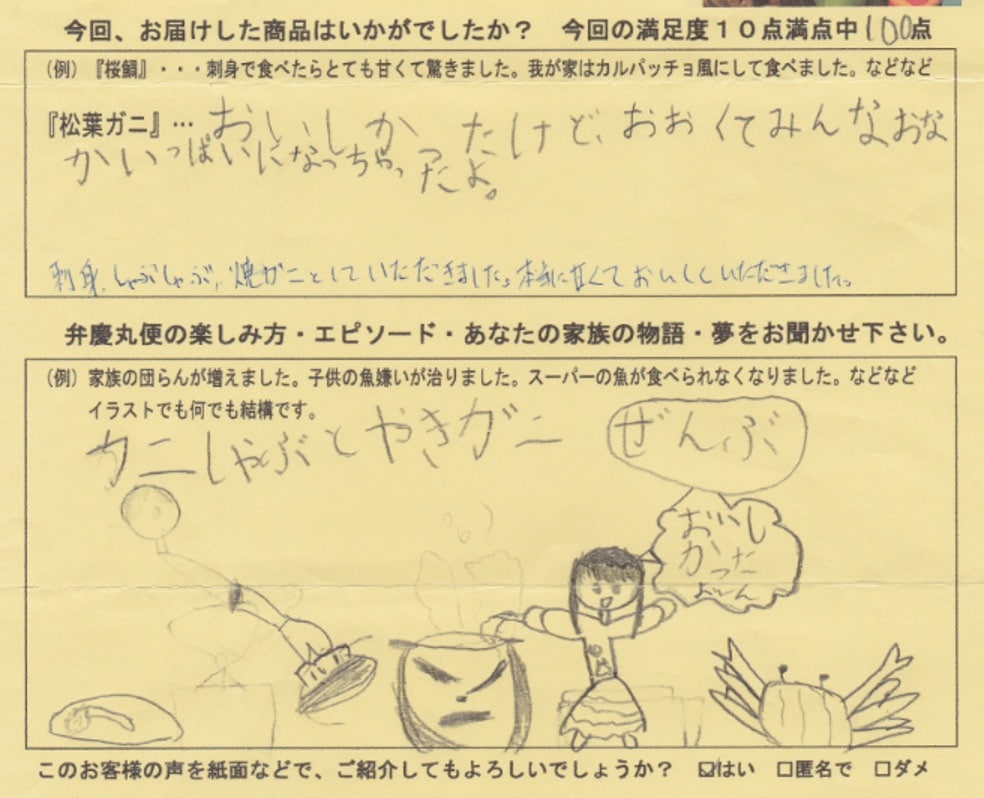 今回、お届けした商品はいかがでしたか？　今回の満足度１０点満点中100点
（例）『桜鯛』・・・刺身で食べたらとても甘くて驚きました。我が家はカルパッチョ風にして食べました。などなど
『松葉ガニ』… おいしかったけど、おおくてみんなおな
かいっぱいになっちゃったよ。
刺身、しゃぶしゃぶ、焼ガニとしていただきました。本当に甘くておいしくいただきました。
弁慶丸便の楽しみ方・エピソード・あなたの家族の物語・夢をお聞かせ下さい。
（例）家族の団らんが増えました。子供の魚嫌いが治りました。スーパーの魚が食べられなくなりました。などなど
イラストでも何でも結構です。
カニしゃぶとやきガニ
ぜんぶ
おいし
かった
よーん
このお客様の声を紙面などで、ご紹介してもよろしいでしょうか？　☑はい　□匿名で　□ダメ